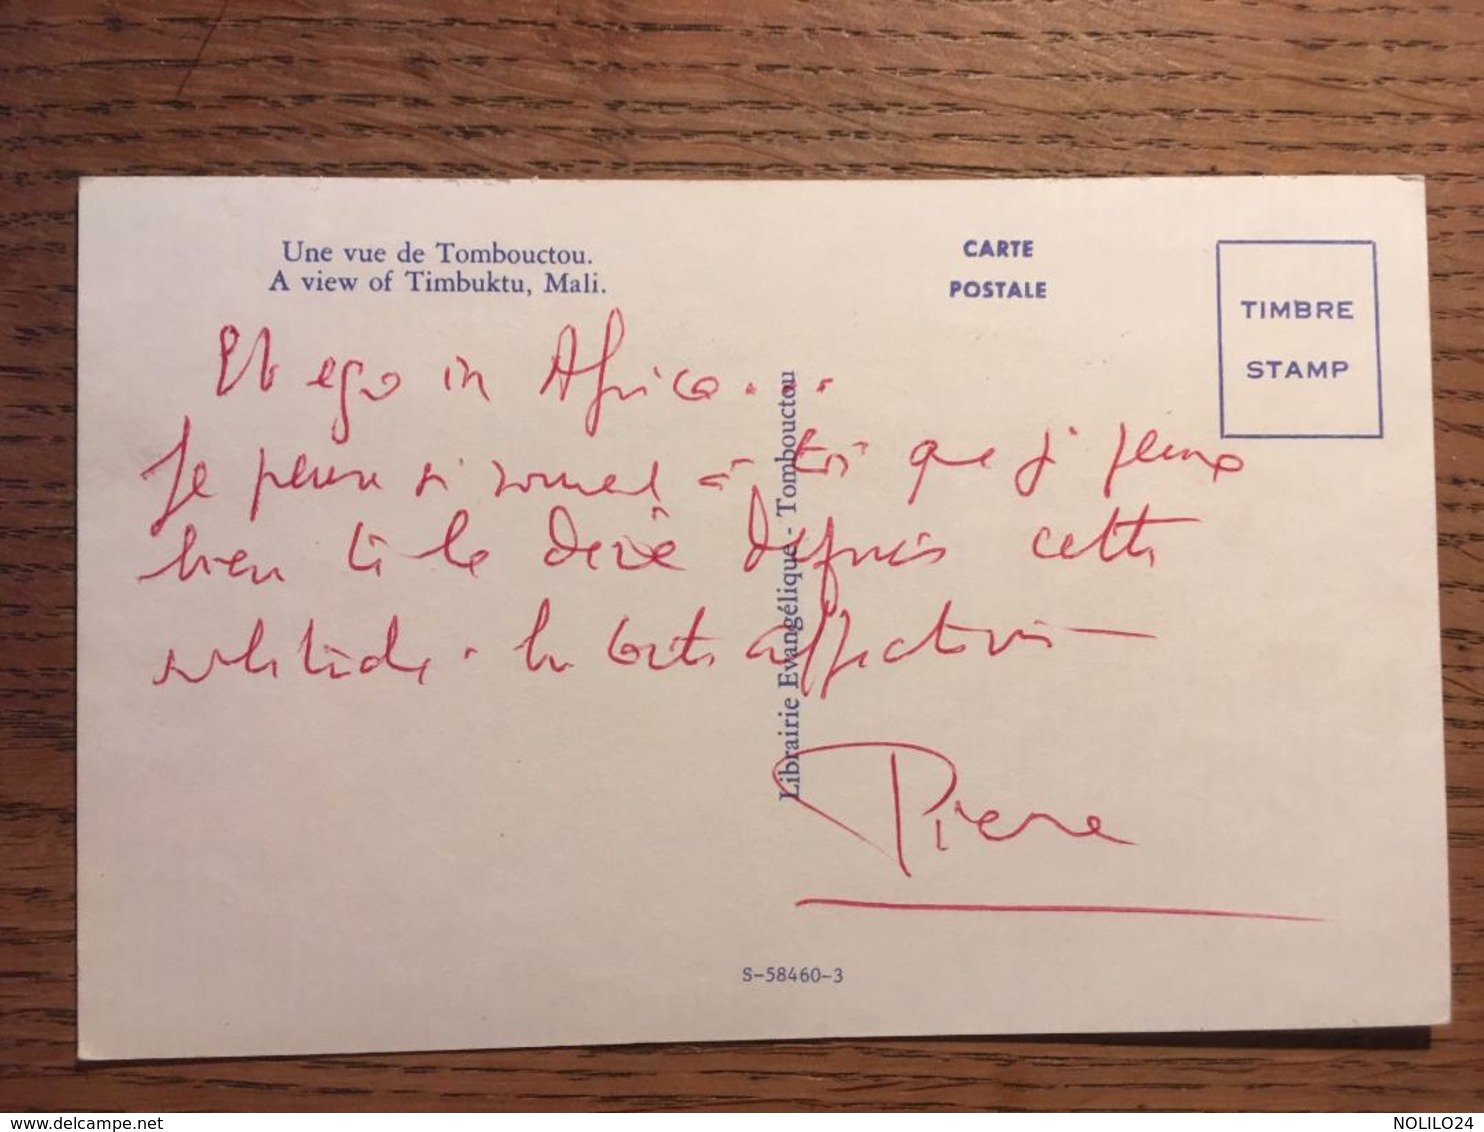 Une vue de Tombouctou.
A view of Timbuktu, Mali.
CARTE
POSTALE
TIMBRE
STAMP
Et ego in Africa...
Je pense si souvent à toi que j' peux
bien te le dire depuis cette
solitude. Très affectueusement
Librairie Evangélique - Tombouctou
Pierre
S-58460-3
www.delcampe.net
NOLILO24